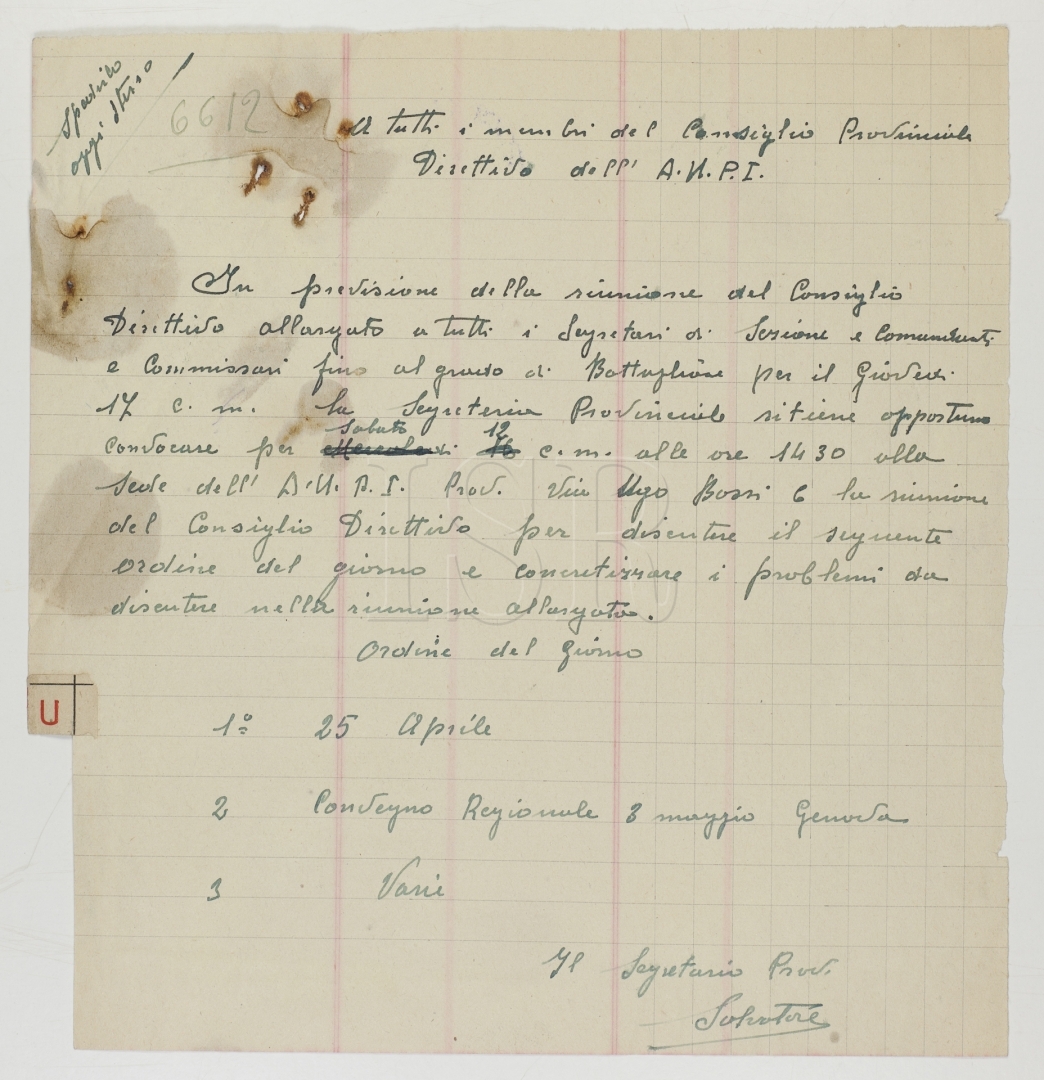 Spedirlo
oggi stesso
6612
A tutti i membri del Consiglio Provinciale
Direttivo dell' A.N.P.I.
In previsione della riunione del Consiglio
Direttivo allargato a tutti i Segretari di Sezione e Comandanti
e Commissari fino al grado di Battaglione per il Giovedi
17 c. m. la Segreteria Provinciale ritiene opportuno
Sabato 12
convocare per Mercoledi 16 c. m. alle ore 1430 alla
Sede dell' A.N.P.I. Prov. Via Ugo Bassi 6 la riunione
del Consiglio Direttivo per discutere il seguente
ordine del giorno e concretizzare i problemi da
discutere nella riunione allargata.
Ordine del Giorno
U
1º 25 Aprile
2 Convegno Regionale 3 maggio Genova
3 Varie
Il Segretario Prov.
Salvatore
ISR